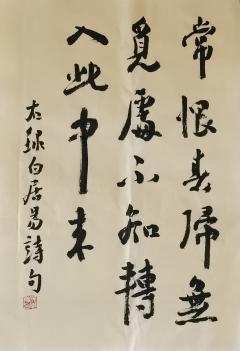 常恨春歸無
覓處不知轉
入此中來
右録白居易詩句